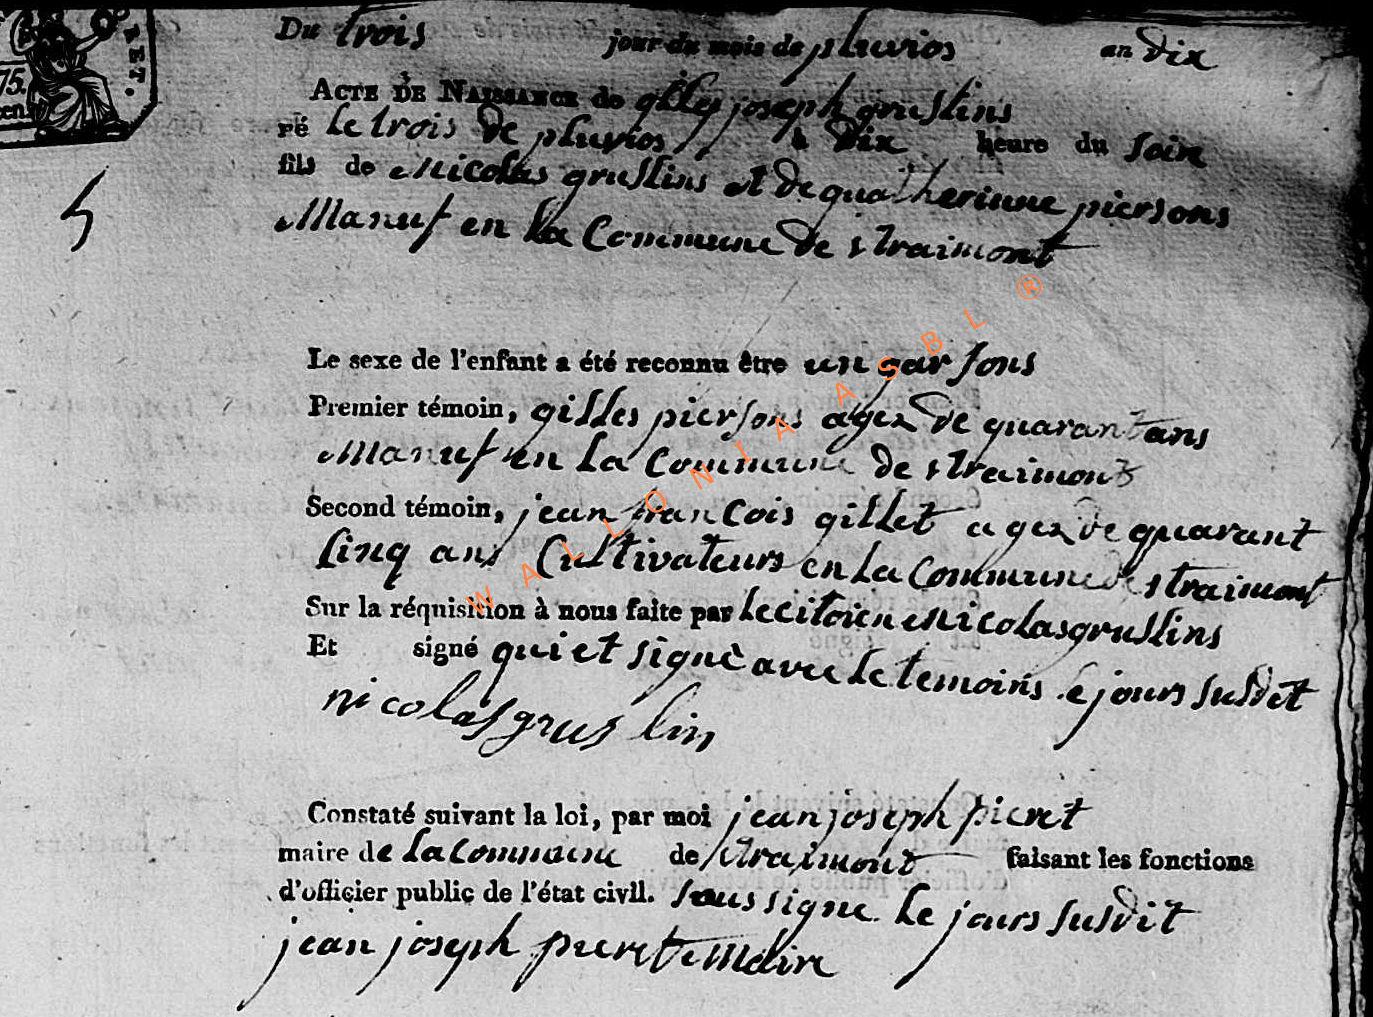 75.
cen.
RÉT.
Du trois jour du mois de pluvios an dix
ACTE DE NAISSANCE de gilles joseph gruslins
né le trois de pluvios à dix heure du soire
fils de nicolas gruslins et de quatherinne piersons
Manuf en la Commune de straimont
5
Le sexe de l'enfant a été reconnu être un garsons
Premier témoin, gilles piersons agez de quarant ans
Manuf en la Commune de straimont
Second témoin, jean francois gillet agez de quarant
sinq ans Cultivateurs en la Commune de straimont
Sur la réquisition à nous faite par le citoien nicolas gruslins
Et signé qui et signè avec le temoins le jours susdit
nicolas gruslin
Constaté suivant la loi, par moi jean joseph pieret
maire de la Commune de straimont faisant les fonctions
d'officier public de l'état civil. sous signe le jours susdit
jean joseph pieret Maire
WALLONIA ASBL ®